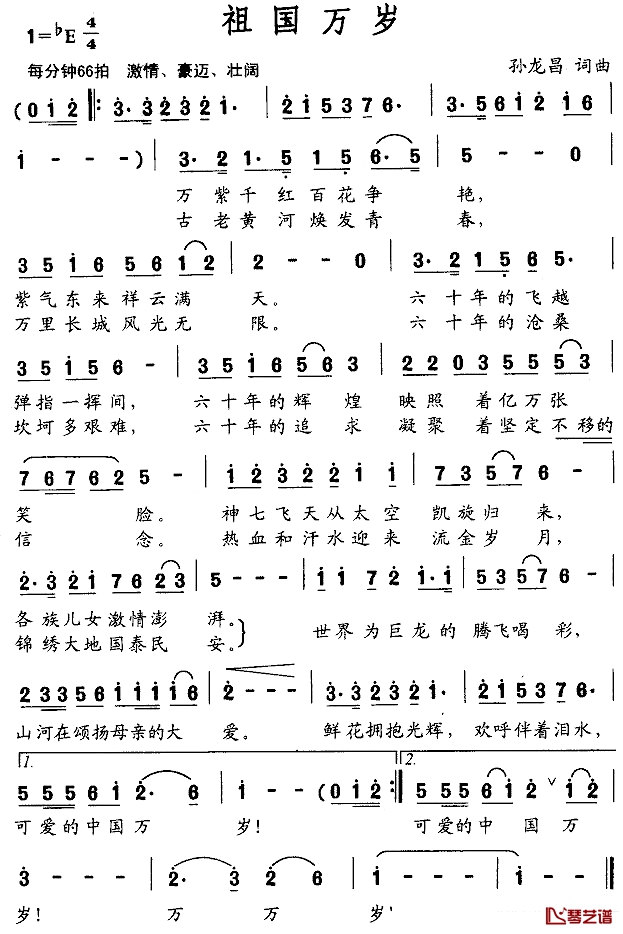 祖国万岁
1=♭E 4/4
每分钟66拍 激情、豪迈、壮阔
孙龙昌 词曲
(0 i 2 ‖: 3· 3 2 3 2 i· | 2 i 5 3 7 6· | 3· 5 6 i 2 i 6 |
i - - -) | 3· 2 1· 5 1 5 6· 5 | 5 - - 0 |
万 紫 千 红 百 花 争 艳,
古 老 黄 河 焕 发 青 春,
3 5 i 6 5 6 1 2 | 2 - - 0 | 3· 2 1 5 6 5· |
紫 气 东 来 祥 云 满 天。 六 十 年 的 飞 越
万 里 长 城 风 光 无 限。 六 十 年 的 沧 桑
3 5 i 5 6 - | 3 5 i 6 5 6 3 | 2 2 0 3 5 5 5 3 |
弹 指 一 挥 间, 六 十 年 的 辉 煌 映 照 着 亿 万 张
坎 坷 多 艰 难, 六 十 年 的 追 求 凝 聚 着 坚 定 不 移 的
7 6 7 6 2 5 - | i 2 3 2 2 i i | 7 3 5 7 6 - |
笑 脸。 神 七 飞 天 从 太 空 凯 旋 归 来,
信 念。 热 血 和 汗 水 迎 来 流 金 岁 月,
2· 3 2 i 7 6 2 3 | 5 - - - | i i 7 2 i· i | 5 3 5 7 6 - |
各 族 儿 女 激 情 澎 湃。
锦 绣 大 地 国 泰 民 安。
世 界 为 巨 龙 的 腾 飞 喝 彩,
2 3 3 5 6 i i i i 6 | 2 - - - | 3· 3 2 3 2 i· | 2 i 5 3 7 6· |
山 河 在 颂 扬 母 亲 的 大 爱。 鲜 花 拥 抱 光 辉, 欢 呼 伴 着 泪 水,
1. 2.
5 5 5 6 i 2· 6 | i - - (0 i 2 :‖ 5 5 5 6 i 2 ∨ i 2 |
可 爱 的 中 国 万 岁! 可 爱 的 中 国 万
3 - - - | 2· 3 2 6 | i - - - | i - - - ‖
岁! 万 万 岁'
琴艺谱